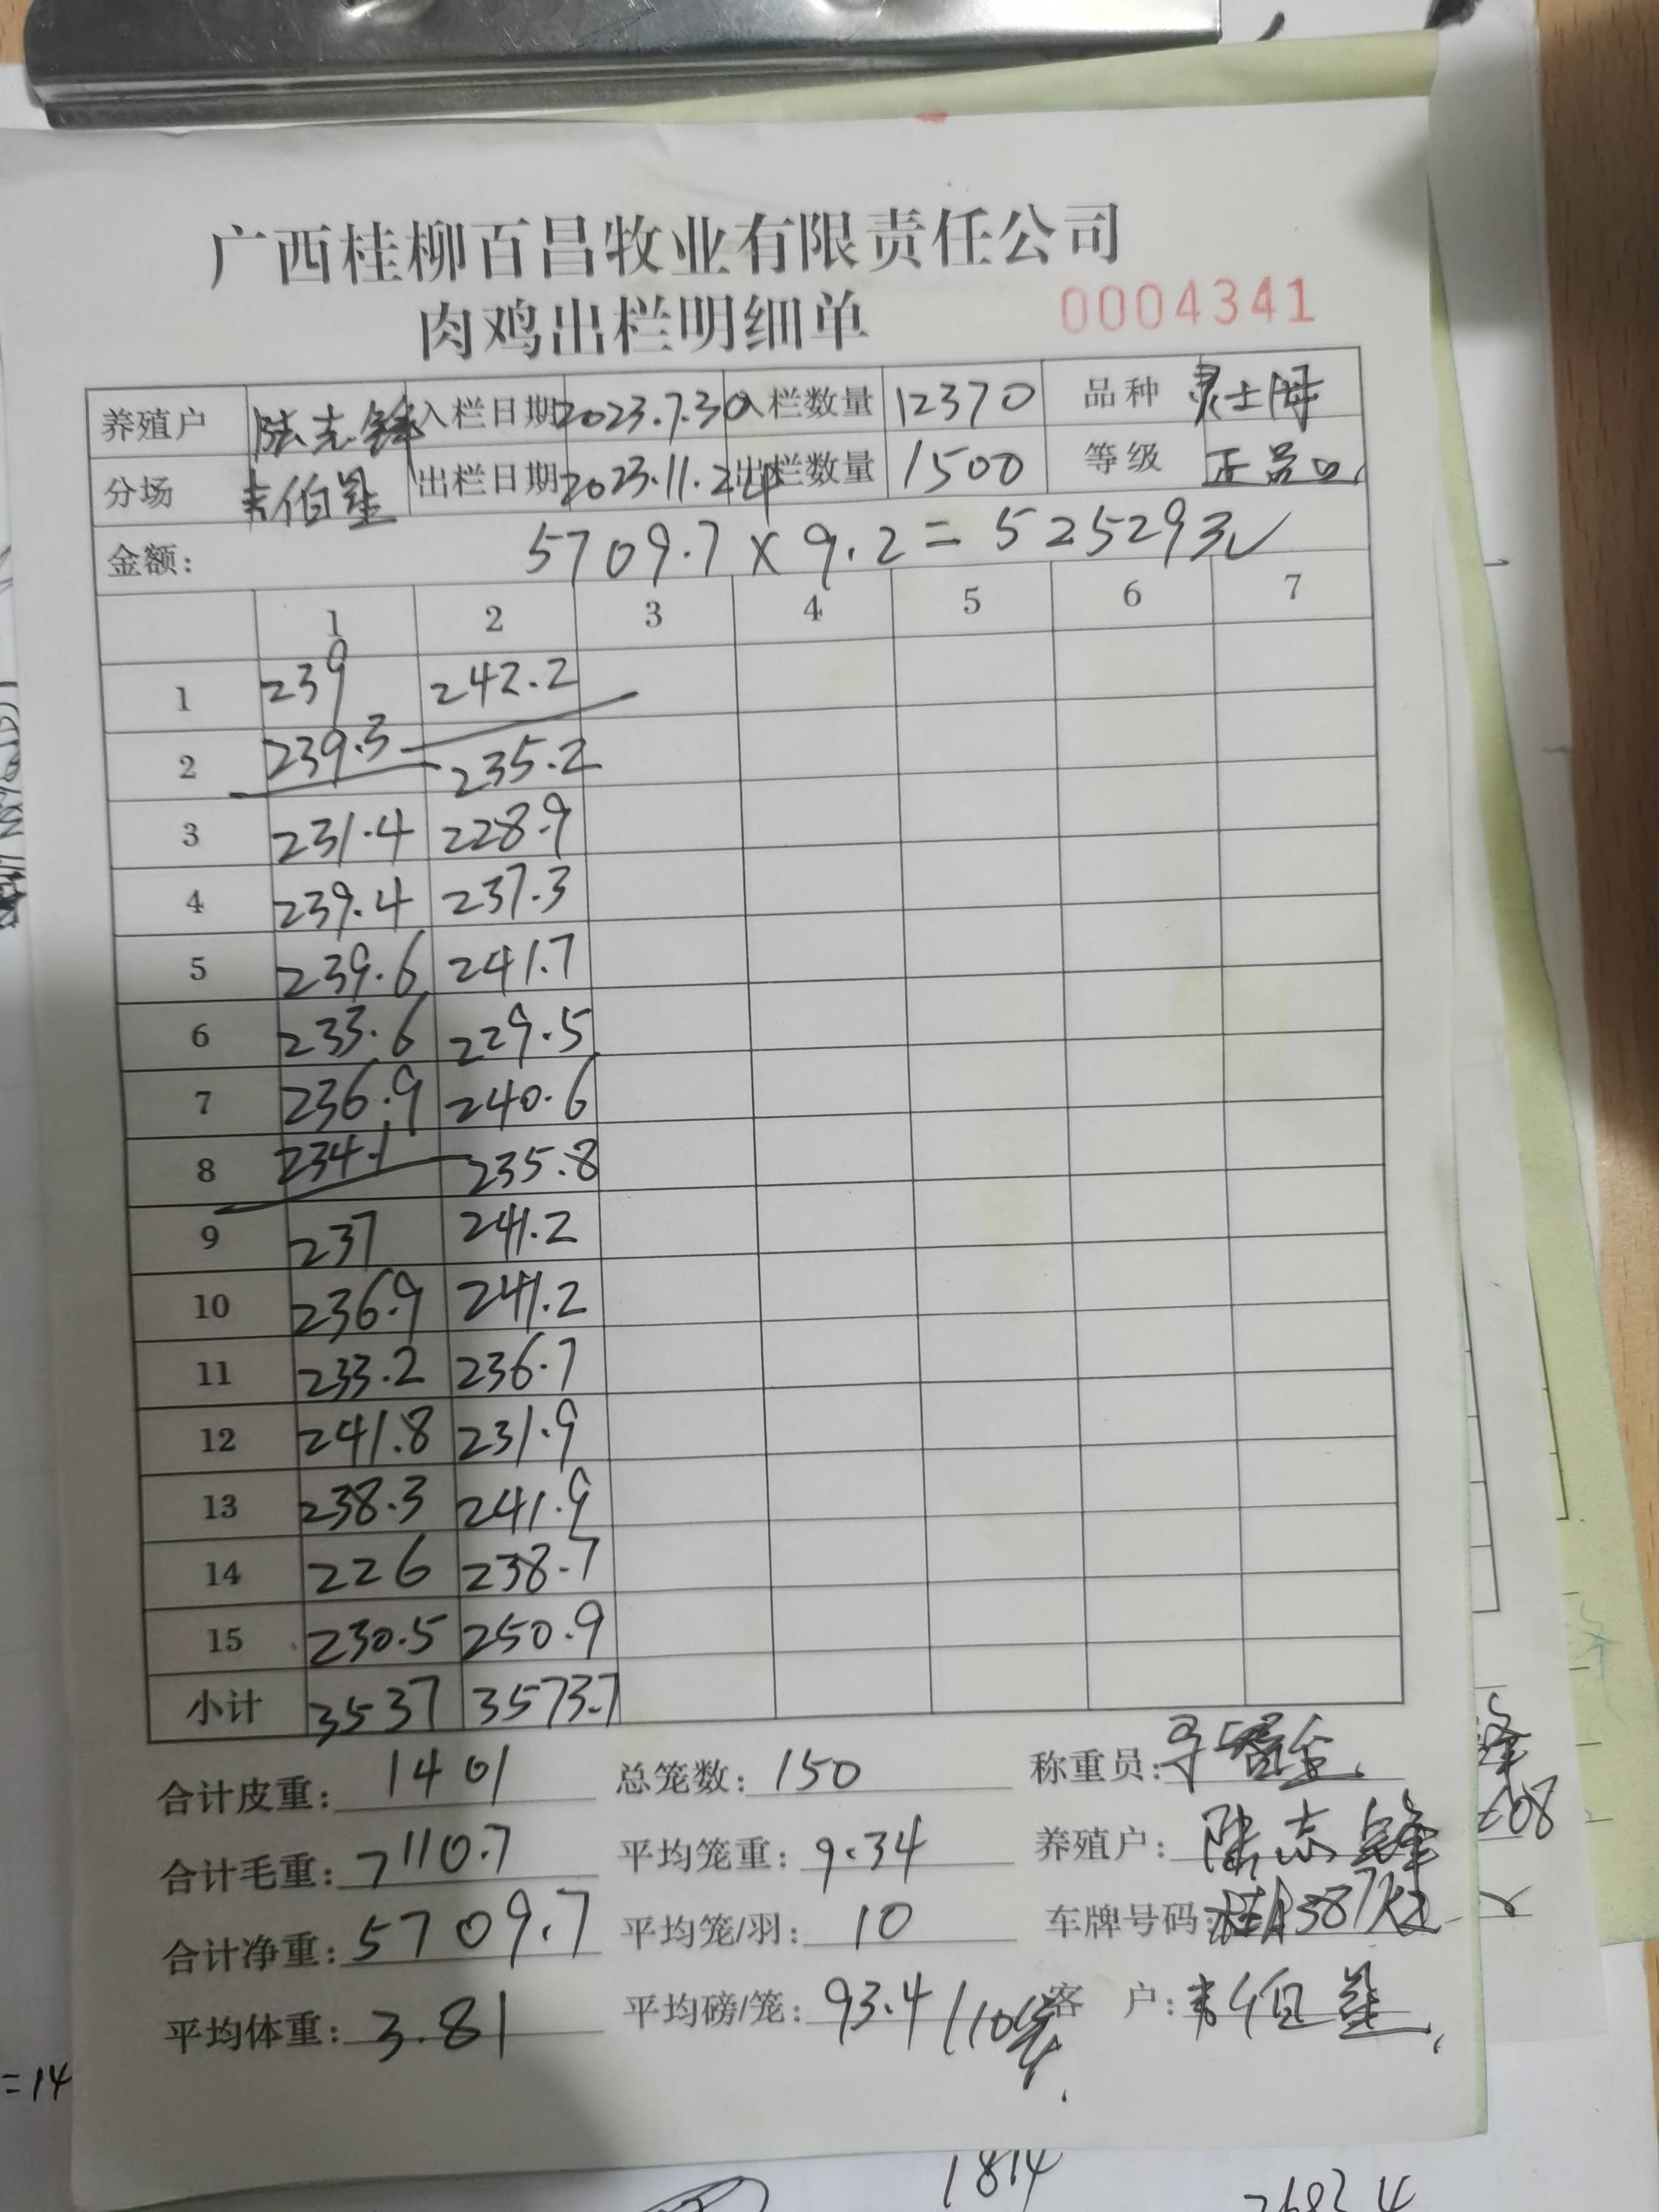 广西桂柳百昌牧业有限责任公司
肉鸡出栏明细单 0004341
养殖户 陆志锋 入栏日期 2023.7.30 入栏数量 12370 品种 灵士阉
分场 韦伯星 出栏日期 2023.11.24 出栏数量 1500 等级 正品
金额: 5709.7 × 9.2 = 525293
1 2 3 4 5 6 7
1 239 242.2
2 239.3 235.2
3 231.4 228.9
4 239.4 237.3
5 239.6 241.7
6 233.6 229.5
7 236.9 240.6
8 234.1 235.8
9 237 241.2
10 236.9 241.2
11 233.2 236.7
12 241.8 231.9
13 238.3 241.9
14 226 238.7
15 230.5 250.9
小计 3537 3573.7
合计皮重: 1401 总笼数: 150 称重员:
合计毛重: 7110.7 平均笼重: 9.34 养殖户: 陆志锋
合计净重: 5709.7 平均笼/羽: 10 车牌号码: 桂A387
平均体重: 3.81 平均磅/笼: 93.4/10 客 户: 韦伯星
=14
1814